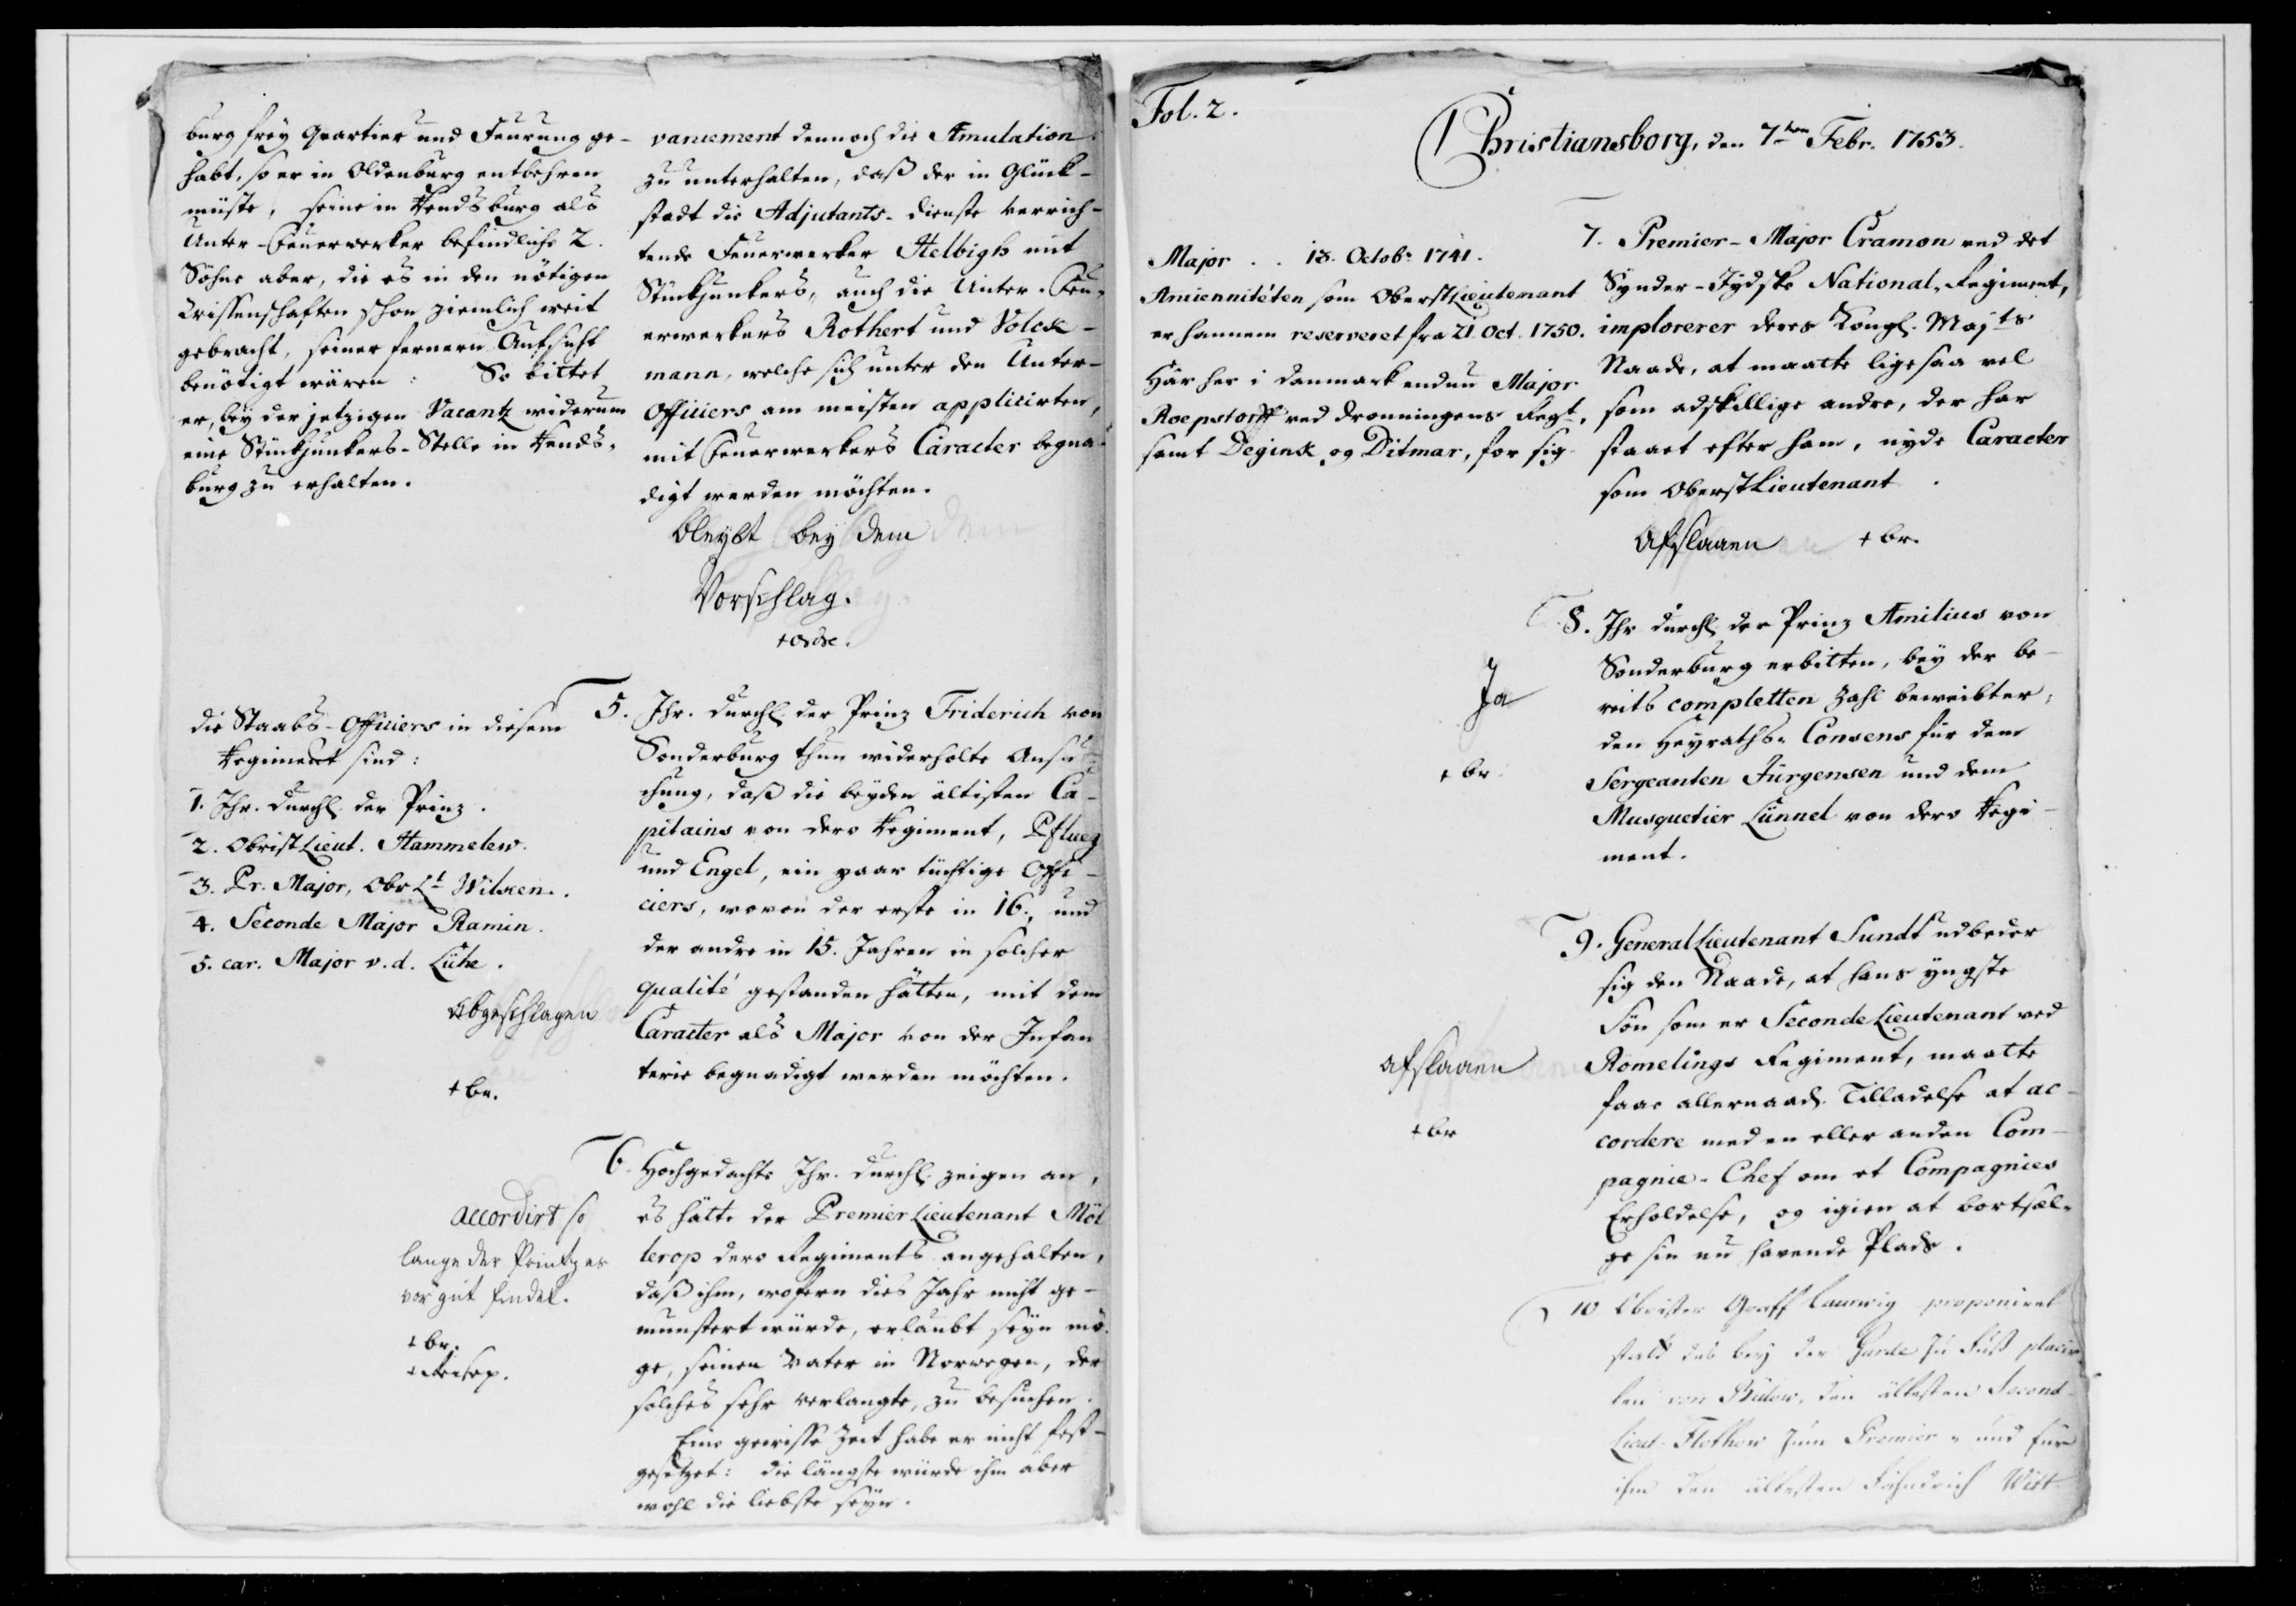 burg frey Quartier und Feurung ge-
habt, so er in Oldenburg entbehren
müste, seine in Rendsburg als
Unter-Feuerwerker befindliche 2.
Söhne aber, die es in den nötigen
Wissenschaften schon ziemlich weit
gebracht, seiner fernern Aufsicht
benötigt wären: So bittet
er, bey der jetzigen Vacantz widerum
eine Stückjunkers-Stelle in Rends-
burg zu erhalten.
vancement dennoch die Æmulation
zu unterhalten, daß der in Glück-
stadt die Adjutants-dienste verrich-
tende Feuerwerker Helbigh mit
Stückjunkers, auch die Unter-Feu-
erwerkers Rothert und Volck-
mann, welche sich unter den Unter-
Officiers am meisten applicirten,
mit Feuerwerkers Caracter begna-
digt werden möchten.
bleybt bey dem
Vorschlag.
+ ordre.
die Staabs-Officiers in diesem
Regiment sind:
1. Ihr. Durchl. der Prinz.
2. ObristLieut. Hammelew.
3. Pr. Major, Obr Lt Wilken.
4. Seconde Major Ramin.
5. car. Major v. d. Lühe.
abgeschlagen
+ br.
5. Ihr. Durchl. der Prinz Friderich von
Sonderburg thun widerholte Ansu-
chung, daß die beyden ältisten Ca-
pitains von dero Regiment, Pflueg
und Engel, ein paar tüchtige Offi-
ciers, wovon der erste in 16., und
der andre in 15. Jahren in solcher
qualité gestanden hätten, mit dem
Caracter als Major von der Infan
terie begnadigt werden möchten.
accordirt so
lange der Printz es
vor gut findet.
+ br.
6. Hochgedachte Ihr. Durchl. zeigen an,
es hätte der PremierLieutenant Möl
lerop dero Regiments angehalten,
daß ihm, wofern dies Jahr nicht ge-
munstert würde, erlaubt seyn mö-
ge, seinen Vater in Norwegen, der
solches sehr verlangte, zu besuchen.
Eine gewisse Zeit habe er nicht fest-
gesetzet: die längste würde ihm aber
wohl die liebste seyn.
Fol. 2.
Christiansborg, den 7ten Febr. 1753.
Major . . 13. Octobr 1741.
Anciennitéten som OberstLieutenant
er hannem reserveret fra 21. Oct. 1750.
Har her i Danmark endnu Major
Roepstorff ved Dronningens Regt,
samt Degink og Ditmar, for sig
7. Premier-Major Cramon ved det
Synder-Jydske National-Regiment,
implorerer deres Kongl. Majts
Naade, at maatte ligesaa vel
som adskillige andre, der har
staaet efter ham, nyde Caracter
som OberstLieutenant.
Afslaaen + br.
Ja
+ br.
8. Ihr Durchl. der Prinz Æmilius von
Sonderburg erbitten, bey der be-
reits completten Zahl beweibter,
den Heyraths-Consens für dem
Sergeanten Jürgensen und dem
Musquetier Lünnel von dero Regi-
ment.
afslaaen
+ br
9. GeneralLieutenant Sundt udbeder
sig den Naade, at hans yngste
Søn som er SecondeLieutenant ved
Römelings Regiment, maatte
faae allernaad. Tilladelse at ac-
cordere med en eller anden Com-
pagnie-Chef om et Compagnies
Erholdelse, og igien at bortsæl-
ge sin nu havende Plads.
10 Obrister Graff Laurwig proponiret
statt des bey der Garde zu Fuß placir
ten von Bülow, den ältesten Second-
Lieut. Flothow zum Premier- und für
ihm den ältesten Fähndrich Witt-